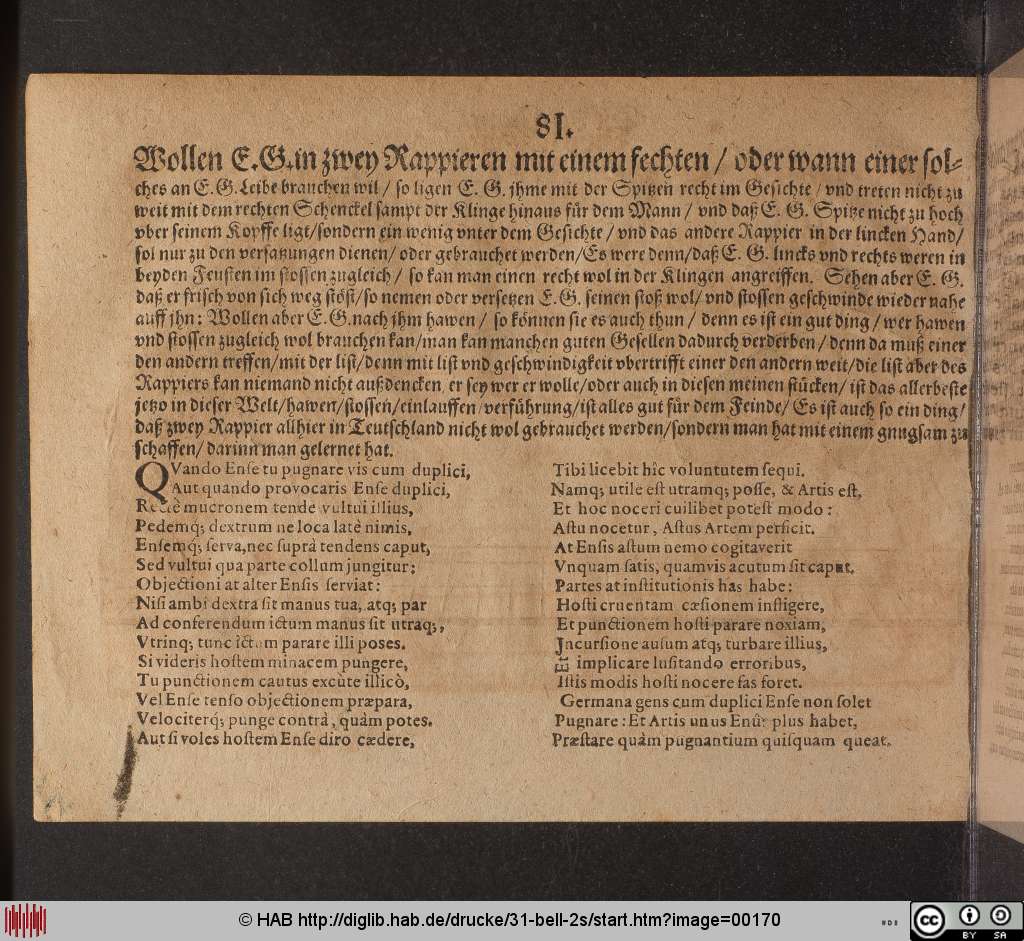 81.
Wollen E.G.in zwey Rappieren mit einem fechten / oder wann einer sol-
ches an E.G. Leibe brauchen wil / so ligen E. G. jhme mit der Spitzen recht im Gesichte / vnd treten nicht zu
weit mit dem rechten Schenckel sampt der Klinge hinaus für dem Mann / vnd daß E. G. Spitze nicht zu hoch
vber seinem Kopffe ligt/sondern ein wenig vnter dem Gesichte / vnd das andere Rappier in der lincken Hand/
sol nur zu den versatzungen dienen/ oder gebrauchet werden/Es were denn/daß E. G. lincks vnd rechts weren in
beyden Feusten im stossen zugleich / so kan man einen recht wol in der Klingen angreiffen. Sehen aber E. G.
daß er frisch von sich weg stöst/so nemen oder versetzen E.G. seinen stoß wol/ vnd stossen geschwinde wieder nahe
auff jhn: Wollen aber E.G.nach jhm hawen / so können sie es auch thun / denn es ist ein gut ding / wer hawen
vnd stossen zugleich wol brauchen kan/man kan manchen guten Gesellen dadurch verderben / denn da muß einer
den andern treffen/mit der list/denn mit list vnd geschwindigkeit vbertrifft einer den andern weit/die list aber des
Rappiers kan niemand nicht außdencken, er sey wer er wolle/oder auch in diesen meinen stücken/ ist das allerbeste
jetzo in dieser Welt/hawen/stossen/einlauffen/verführung/ist alles gut für dem Feinde/ Es ist auch so ein ding/
daß zwey Rappier allhier in Teutschland nicht wol gebrauchet werden/sondern man hat mit einem gnugsam zu
schaffen/ darinn man gelernet hat.
QVando Ense tu pugnare vis cum duplici,
Aut quando provocaris Ense duplici,
Rectè mucronem tende vultui illius,
Pedemq; dextrum ne loca latè nimis,
Ensemq; serva,nec suprà tendens caput,
Sed vultui qua parte collum jungitur:
Objectioni at alter Ensis serviat:
Nisi ambi dextra sit manus tua, atq; par
Ad conferendum ictum manus sit utraq;,
Vtrinq; tunc ictum parare illi poses.
Si videris hostem minacem pungere,
Tu punctionem cautus excute illicò,
Vel Ense tenso objectionem præpara,
Velociterq; punge contrà, quàm potes.
Aut si voles hostem Ense diro cædere,
Tibi licebit hic voluntutem sequi.
Namq; utile est utramq; posse, & Artis est,
Et hoc noceri cuilibet potest modo:
Astu nocetur, Astus Artem perficit.
At Ensis astum nemo cogitaverit
Vnquam satis, quamvis acutum sit caput.
Partes at institutionis has habe:
Hosti cruentam cæsionem instigere,
Et punctionem hosti parare noxiam,
Jncursione ausum atq; turbare illius,
Et implicare lusitando erroribus,
Istis modis hosti nocere fas foret.
Germana gens cum duplici Ense non solet
Pugnare: Et Artis unus plus habet,
Præstare quàm pugnantium quisquam queat.
© HAB http://diglib.hab.de/drucke/31-bell-2s/start.htm?image=00170
cc BY SA